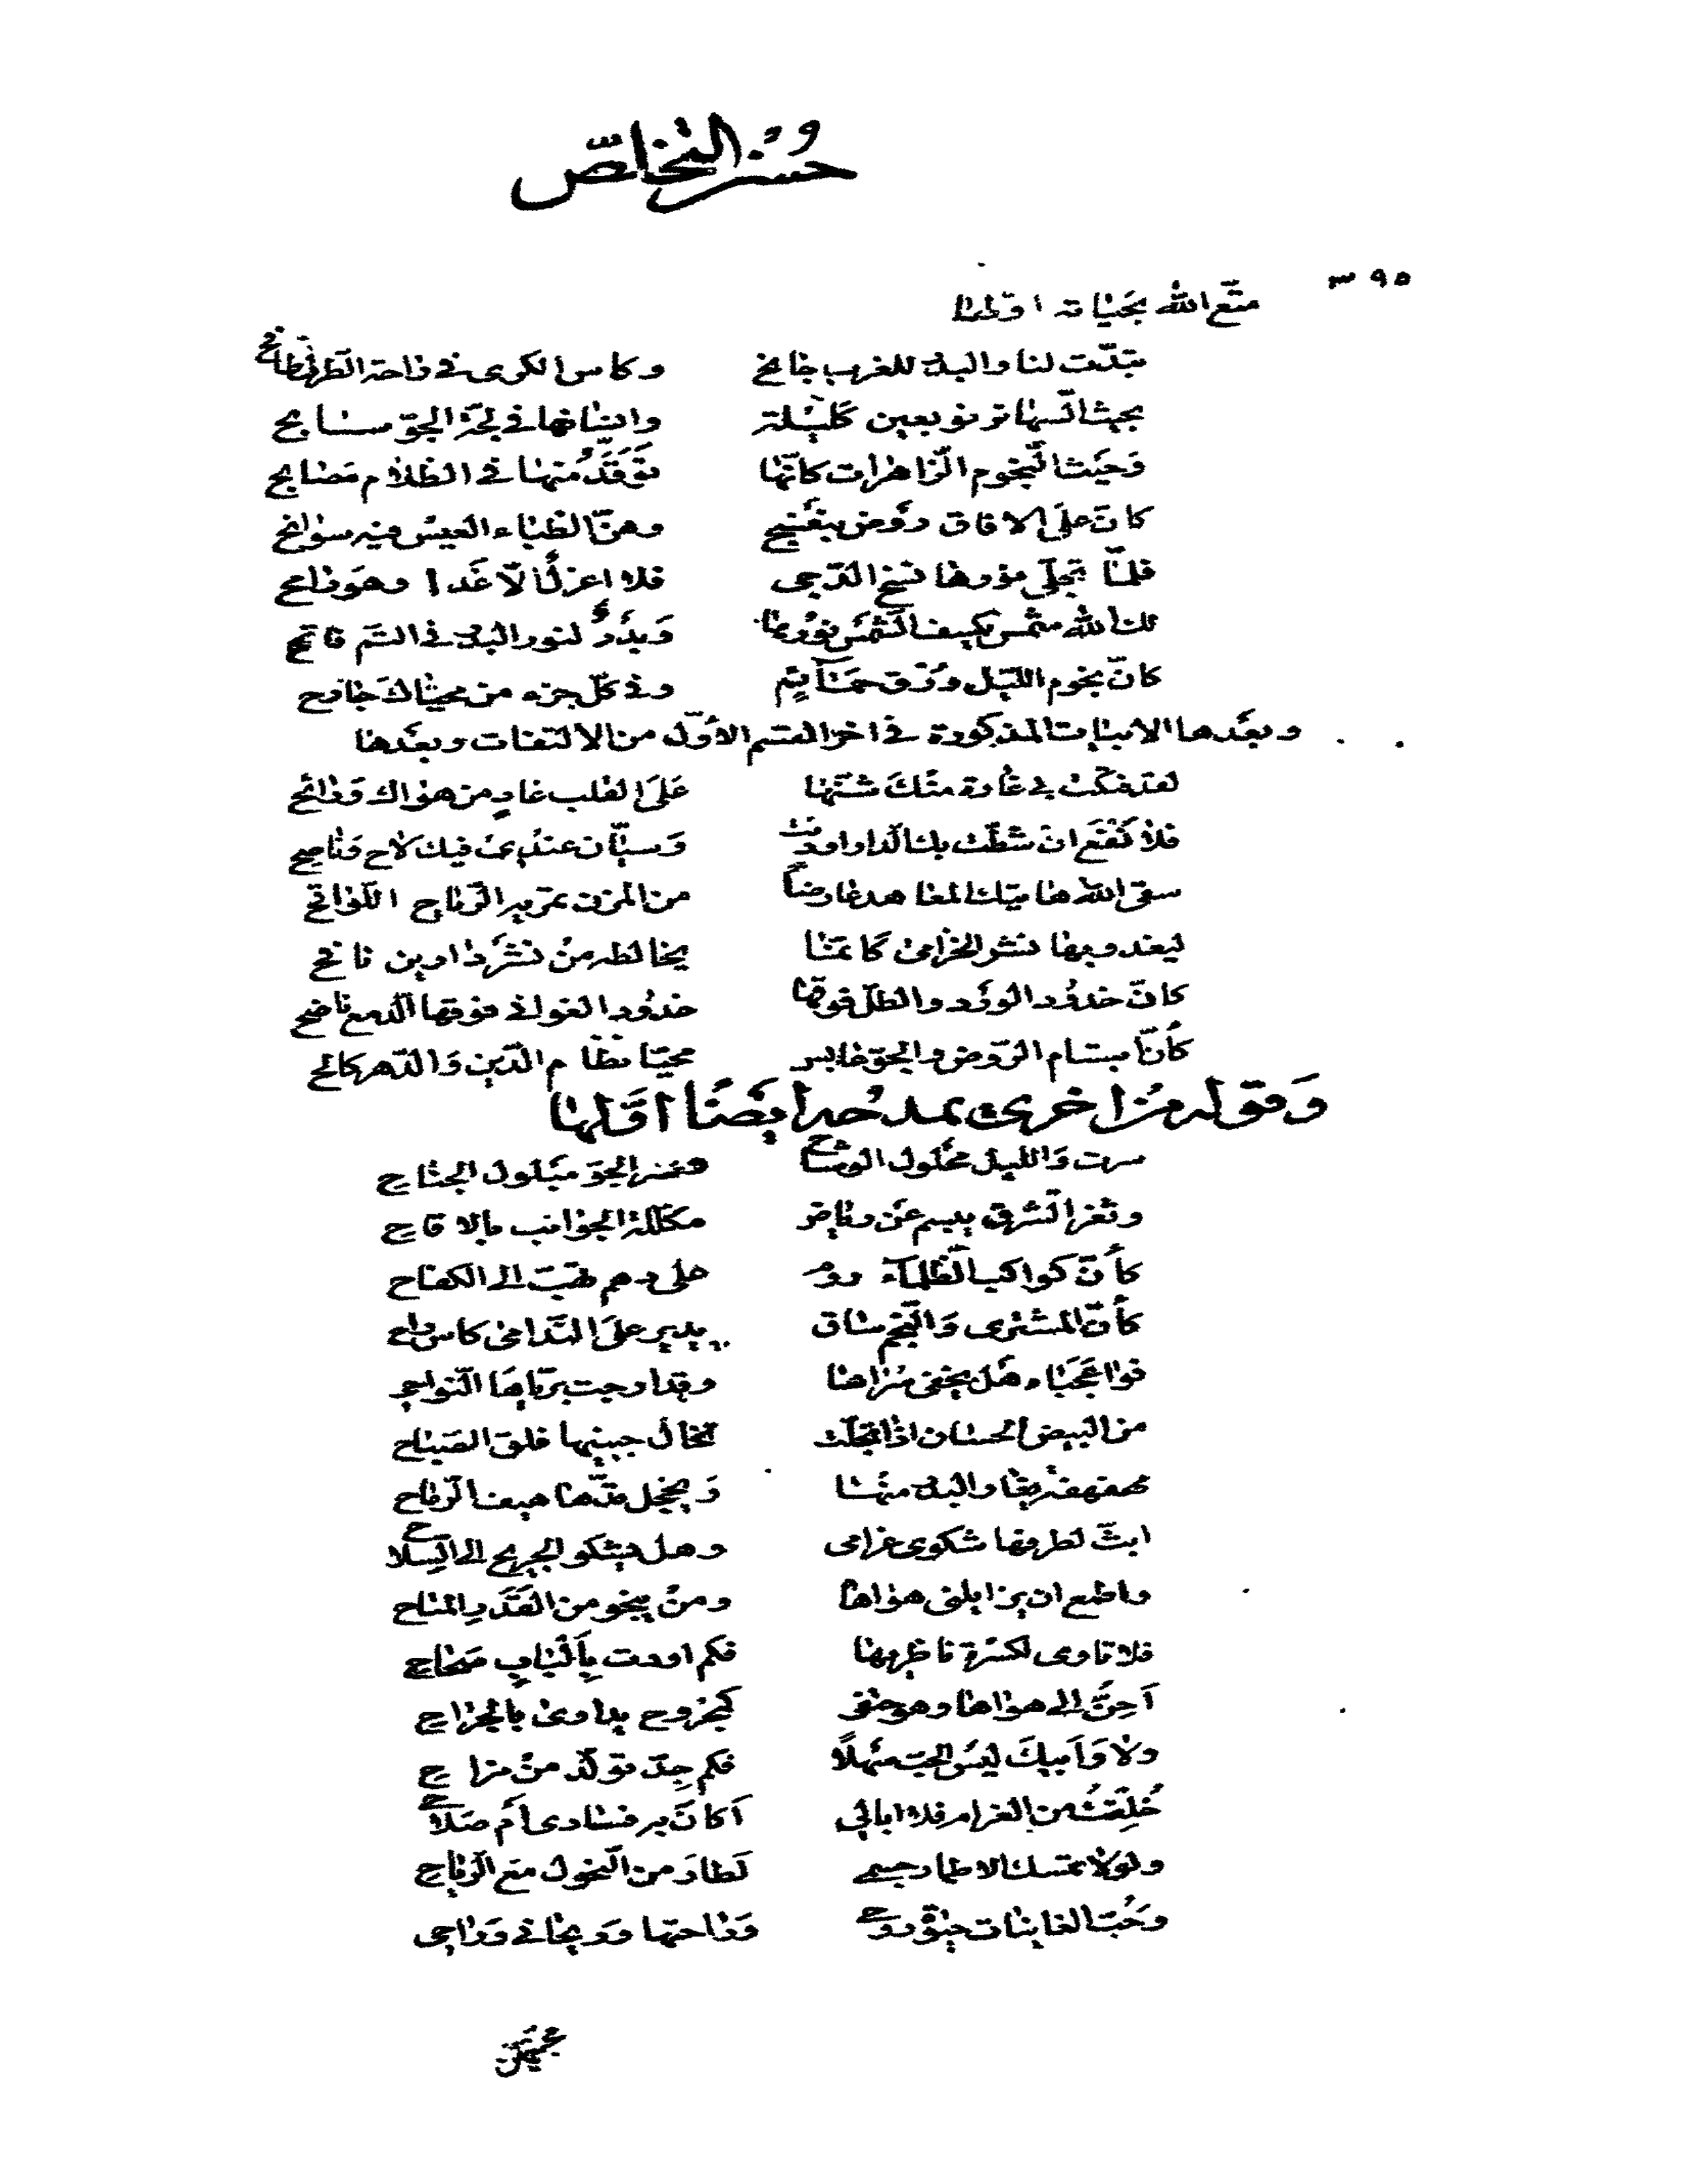 حسن التخلّص
٣٩٥
متّع الله بحياته اوّلها
تبدّت لنا والبدر للغرب جانح وكاس الكرى في راحة الطرف طافح
بحيث السّها ترنو بعين كليلة وانسانها في لجّة الجوّ سابح
وحيث النّجوم الزّاهرات كانّها توقّد منها في الظلام مصابح
كانّ على الافاق روض بنفسج وهنّ الظباء العيس فيه سوانح
فلمّا تجلّى نورها نسخ الدّجى فلا اعزل الّا غدا وهو رامح
لك الله شمس يكسف الشمس نورها وبدر لنور البدر في التمّ فاتح
كانّ نجوم الليل ورق حمائم وفي كلّ جزء من محيّاك جارح
وبعدها الابيات المذكورة في اخر القسم الاوّل من الالتفات وبعدها
لقد فتكت بي غارة منك شنّها على القلب غاد من هواك ورائح
فلا تقنع ان شطّت بك الدار او دنت وسيّان عندي فيك لاح وناصح
سقى الله هاتيك المعاهد عارضاً من المزن تمريه الرّياح اللّواقح
ليغدو بها نشر الخزامى كانّما يخالطه من نشر دارين نافح
كانّ خدود الورد والطلّ فوقها خدود الغواني فوقها الدمع ناضح
كأنّ ابتسام الروض والجوّ عابس محيّا نظام الدّين والدّهر كالح
وقوله من اخرى يمدحه ايضًا اوّلها
سرت والليل محلول الوشاح ونسر الجوّ مبلول الجناح
وثغر الشرق يبسم عن رياض مكلّلة الجوانب بالاقاح
كأنّ كواكب الظلماء روم على دهم تهبّ الى الكفاح
كأنّ المشترى والنّجم ساق يدير على الندامى كاس راح
فواعجباء هل يخفى سراها وقد ارجت بريّاها النّواحي
من البيض الحسان اذا تجلّت تخال جبينها فلق الصباح
مهفهفة يغار البدر منها ويخجل قدّها هيف الرّماح
ابثّ لطرفها شكوى غرامى وهل يشكو الجريح الى السّلاح
واطمع ان يزايلنى هواها ومن ينجو من القدر المتاح
فلا تاوى لكسرة ناظريها فكم اودت بألباب صحاح
أحنّ الى هواها وهو حتفى كمجروح يداوى بالجراح
ولا وأبيك ليس الحبّ سهلًا فكم جدّ تولّد من مزاح
خُلِقتُ من الغرام فلا ابالي أكان به فسادى أم صلاح
ولولا تمسك الاطمار جسمي لطار من النحول مع الرّياح
وحُبّ الغانيات حيٰوة روحي وراحتها وريحاني وراحى